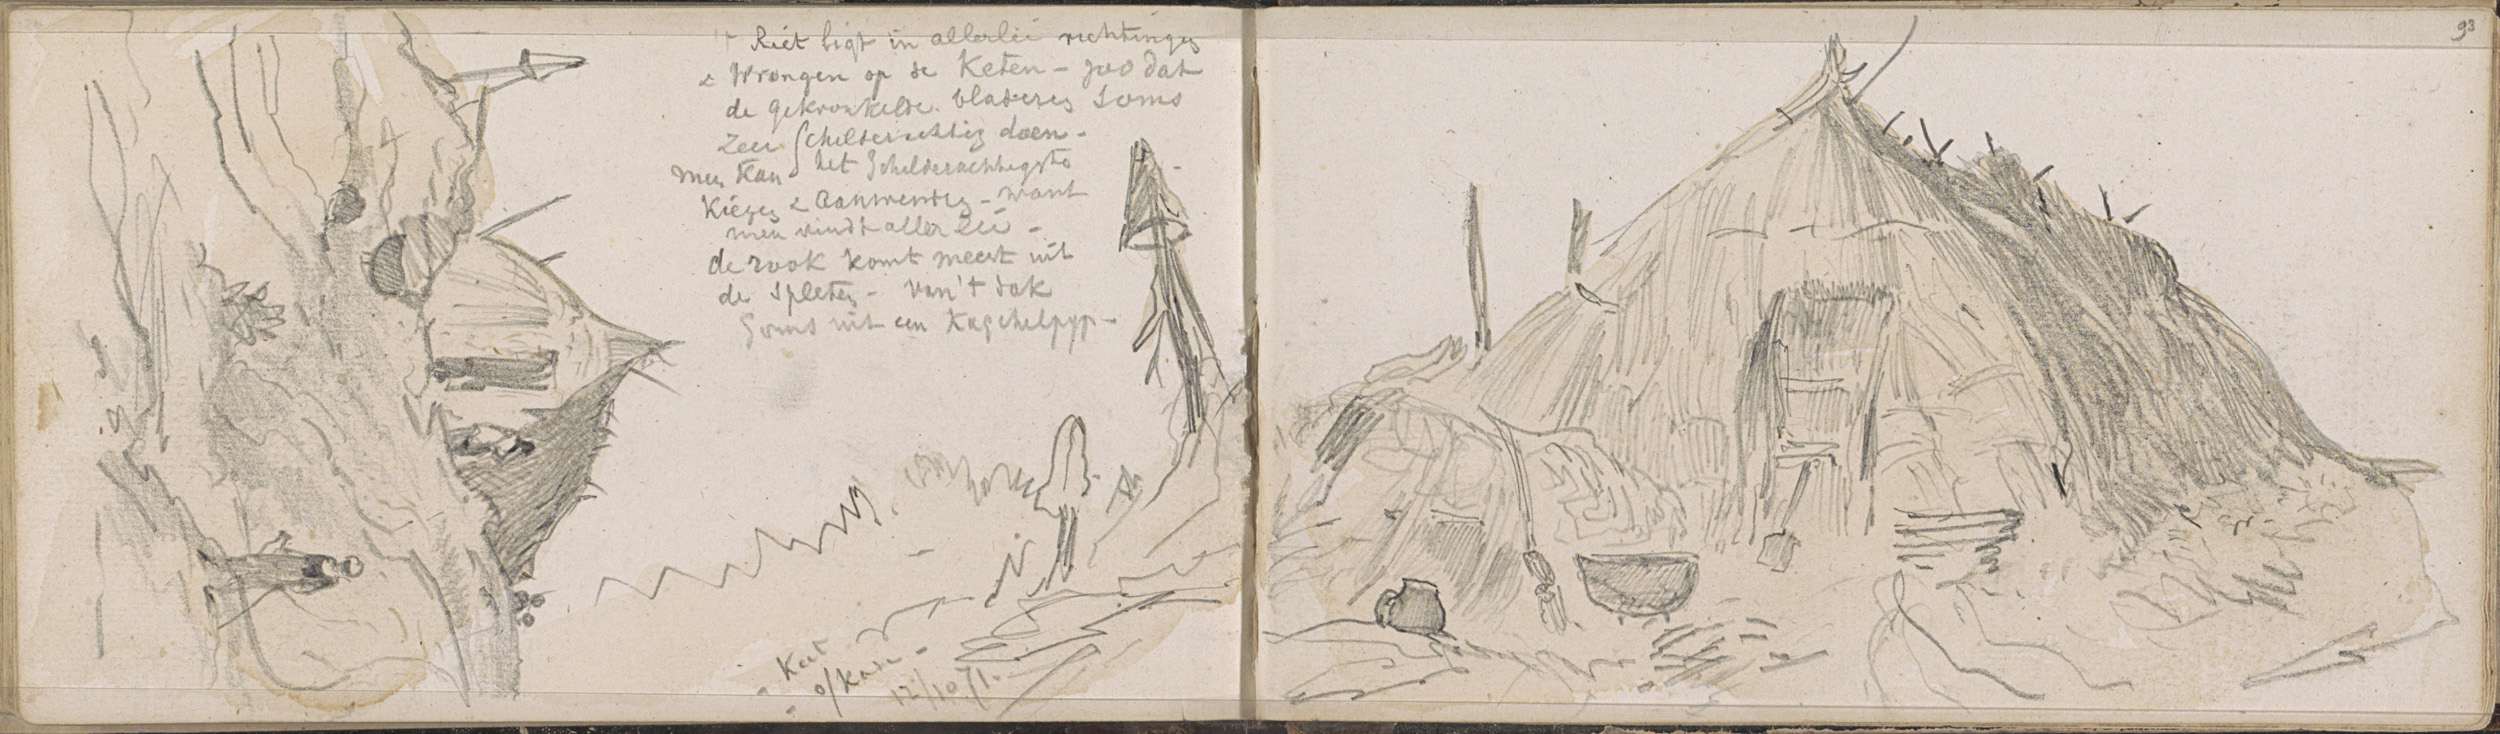 93
't Riet ligt in allerlei richtingen
& Wrongen op de Keten - zoo dat
de gekronkelde bladeren soms
Zeer Schilderachtig doen -
Men Kan het Schilderachtigste
Kiezen & Aanwenden - want
men vindt allerlei -
de rook komt meest uit
de Spleten - van 't dak
Soms uit een Kagchelpyp -
Keet
o/
17/10/71.